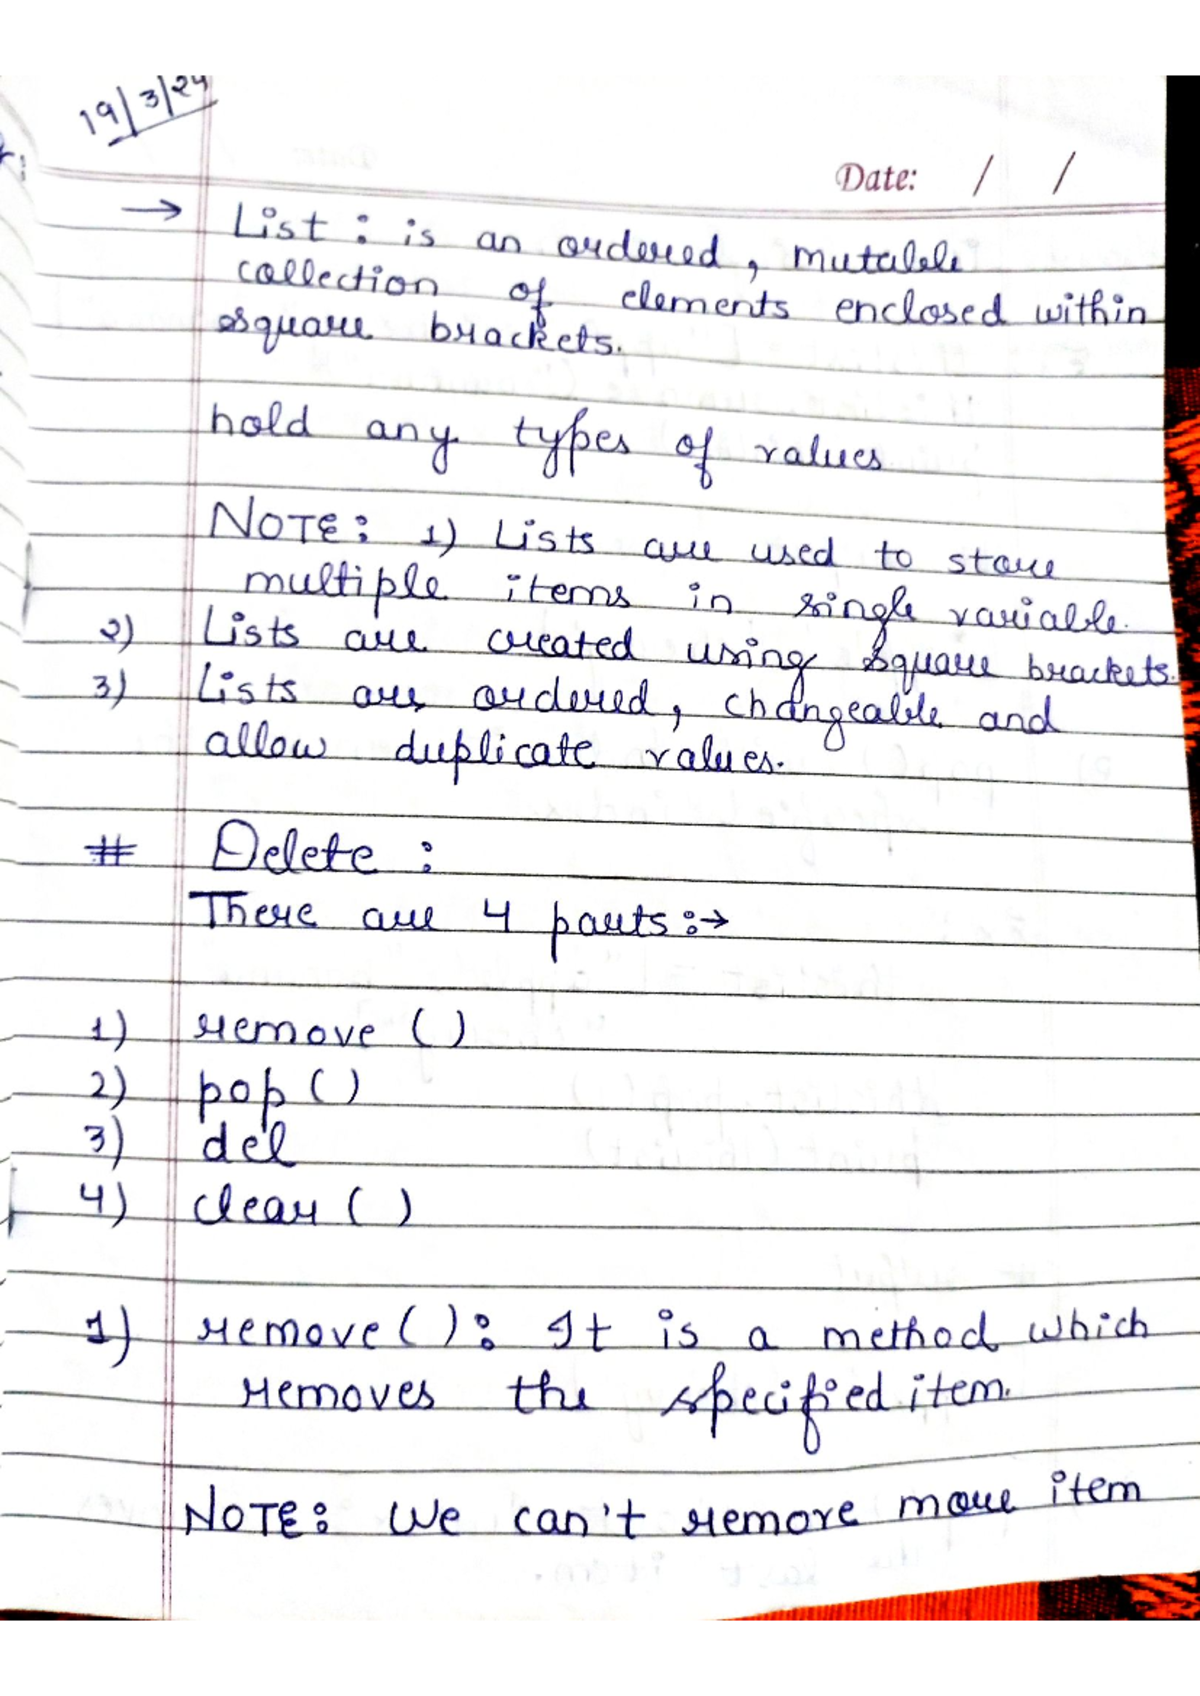 19/3/24
Date: / /
→ List : is an ordered, mutable
collection of elements enclosed within
square brackets.
hold any types of values
NOTE: 1) Lists are used to store
multiple items in single variable.
2) Lists are created using square brackets.
3) Lists are ordered, changeable and
allow duplicate values.
# Delete :
There are 4 parts :→
1) remove ( )
2) pop ( )
3) del
4) clear ( )
1) remove ( ) : It is a method which
removes the specified item.
NOTE: We can't remove more item